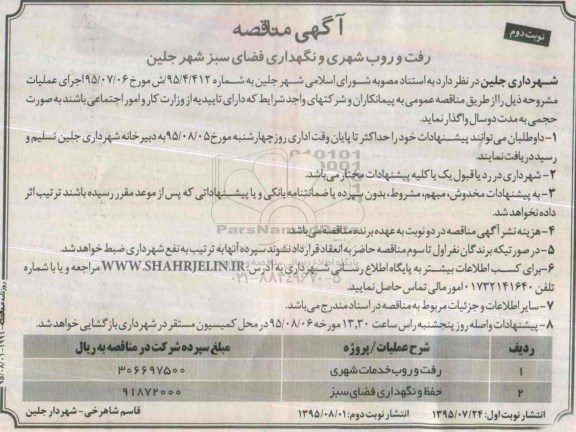 آگهی مناقصه
نوبت دوم
رفت و روب شهری و نگهداری فضای سبز شهر جلین
شهرداری جلین در نظر دارد به استناد مصوبه شورای اسلامی شهر جلین به شماره ۹۵/۴/۴۱۲/ش مورخ ۹۵/۰۷/۰۶ اجرای عملیات
مشروحه ذیل را از طریق مناقصه عمومی به پیمانکاران و شرکتهای واجد شرایط که دارای تاییدیه از وزارت کار و امور اجتماعی باشند به صورت
حجمی به مدت دو سال واگذار نماید.
۱- داوطلبان می‌توانند پیشنهادات خود را حداکثر تا پایان وقت اداری روز چهارشنبه مورخ ۹۵/۰۸/۰۵ به دبیرخانه شهرداری جلین تسلیم و
رسید دریافت نمایند.
۲- شهرداری در رد یا قبول یک یا کلیه پیشنهادات مختار می‌باشد.
۳- به پیشنهادات مخدوش، مبهم، مشروط، بدون سپرده یا ضمانتنامه بانکی و یا پیشنهاداتی که پس از موعد مقرر رسیده باشند ترتیب اثر
داده نخواهد شد.
۴- هزینه نشر آگهی مناقصه در دو نوبت به عهده برنده مناقصه می‌باشد.
۵- در صورتیکه برندگان نفر اول تا سوم مناقصه حاضر به انعقاد قرارداد نشوند سپرده آنها به ترتیب به نفع شهرداری ضبط خواهد شد.
۶- برای کسب اطلاعات بیشتر به پایگاه اطلاع رسانی شهرداری به آدرس: WWW.SHAHRJELIN.IR مراجعه و یا با شماره
تلفن ۰۱۷۳۲۱۴۱۶۴۰ امور مالی تماس حاصل نمایید.
۷- سایر اطلاعات و جزئیات مربوط به مناقصه در اسناد مندرج می‌باشد.
۸- پیشنهادات واصله روز پنجشنبه راس ساعت ۱۳,۳۰ مورخه ۹۵/۰۸/۰۶ در محل کمیسیون مستقر در شهرداری بازگشایی خواهد شد.
ردیف شرح عملیات / پروژه مبلغ سپرده شرکت در مناقصه به ریال
۱ رفت و روب خدمات شهری ۳۰۶۶۹۷۵۰۰
۲ حفظ و نگهداری فضای سبز ۹۱۸۷۲۰۰۰
انتشار نوبت اول: ۱۳۹۵/۰۷/۲۴ انتشار نوبت دوم: ۱۳۹۵/۰۸/۰۱ قاسم شاهرخی - شهردار جلین